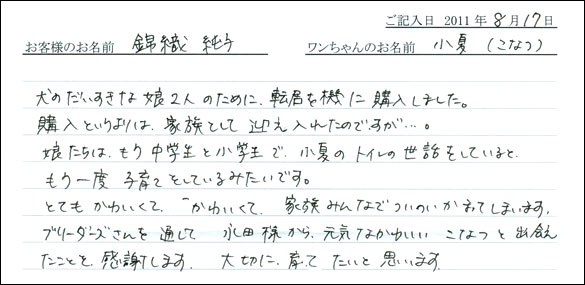 ご記入日 2011年8月17日
お客様のお名前 錦織 純子 ワンちゃんのお名前 小夏（こなつ）
犬のだいすきな娘2人のために、転居を機に購入しました。
購入というよりは、家族として迎え入れたのですが…。
娘たちは、もう中学生と小学生で、小夏のトイレの世話をしていると、
もう一度子育てをしているみたいです。
とてもかわいくて、かわいくて、家族みんなでついついかまってしまいます。
ブリーダーズさんを通じて永田様から、元気なかわいいこなつと出会え
たことを、感謝します。大切に、育てたいと思います。